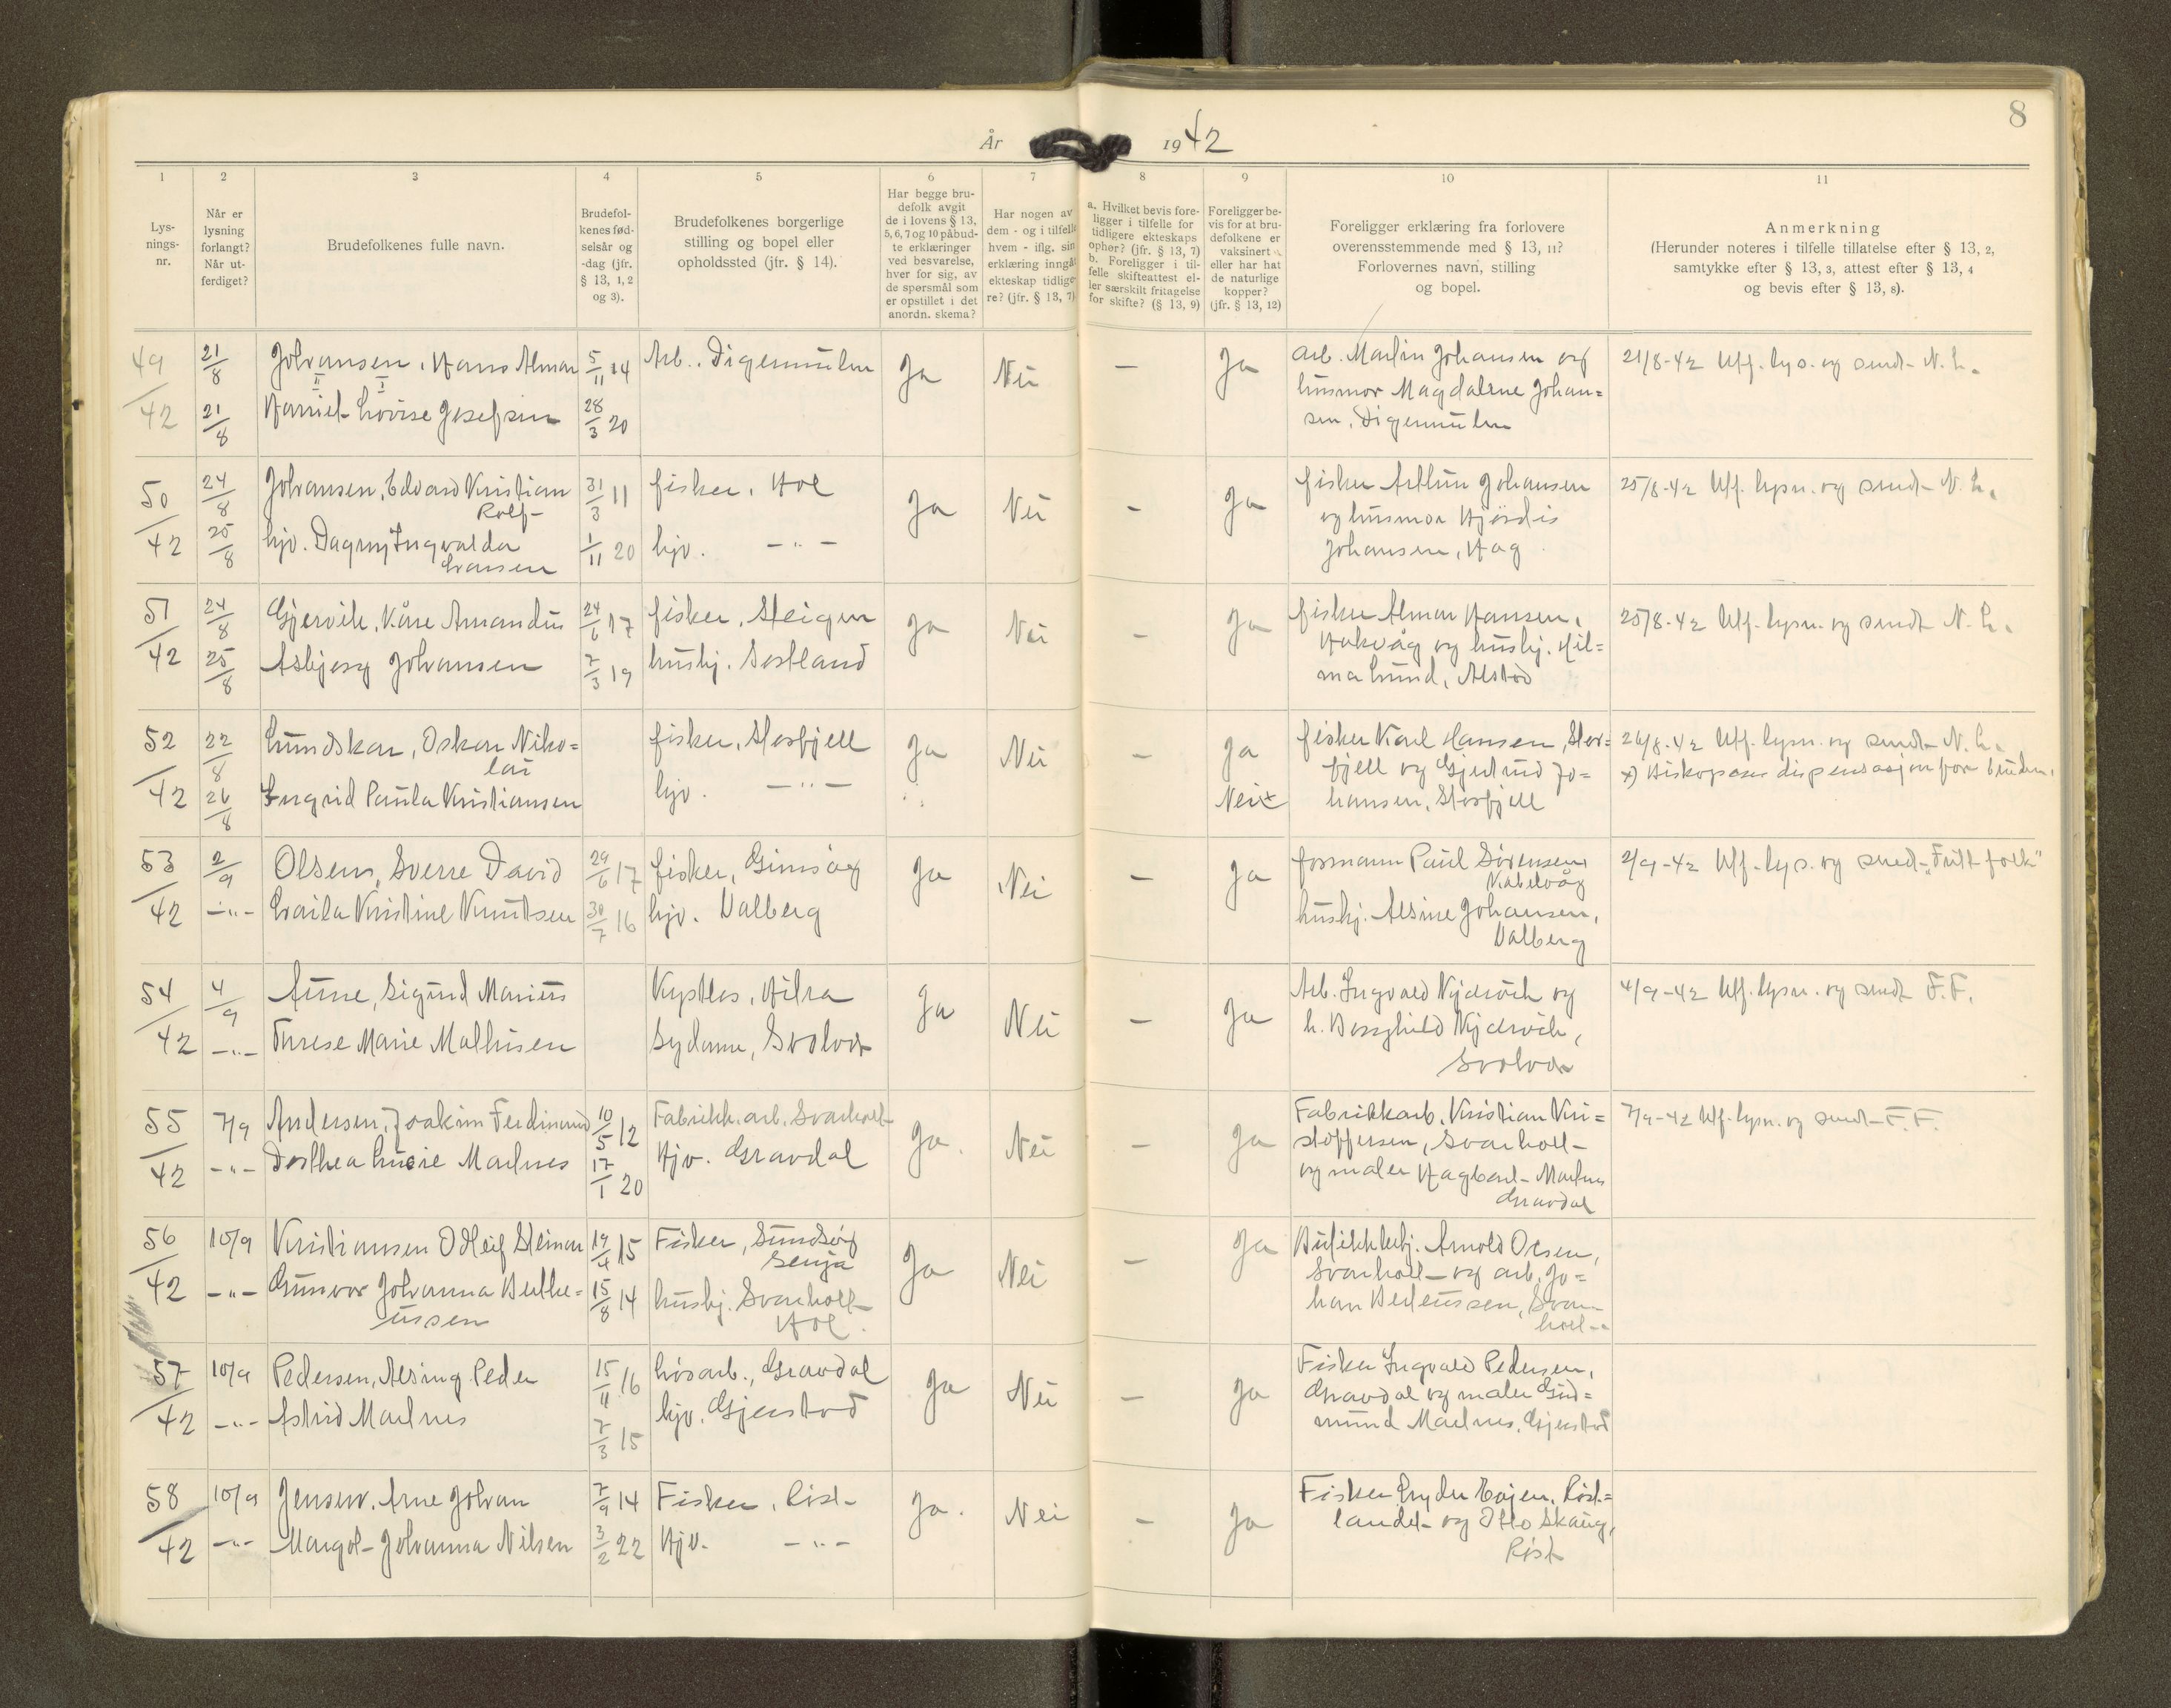 8
År 1942
1 2 3 4 5 6 7 8 9 10 11
Lys-
nings-
nr.
Når er
lysning
forlangt?
Når ut-
ferdiget?
Brudefolkenes fulle navn.
Brudefol-
kenes fød-
selsår og
-dag (jfr.
§ 13, 1, 2
og 3).
Brudefolkenes borgerlige
stilling og bopel eller
opholdssted (jfr. § 14).
Har begge bru-
defolk avgit
de i lovens § 13,
5, 6, 7 og 10 påbud-
te erklæringer
ved besvarelse,
hver for sig, av
de spørsmål som
er opstillet i det
anordn. skema?
Har nogen av
dem - og i tilfelle
hvem - iflg. sin
erklæring inngåt
ekteskap tidlige-
re? (jfr. § 13, 7)
a. Hvilket bevis fore-
ligger i tilfelle for
tidligere ekteskaps
ophør? (jfr. § 13, 7)
b. Foreligger i til-
felle skifteattest el-
ler særskilt fritagelse
for skifte? (§ 13, 9)
Foreligger be-
vis for at bru-
defolkene er
vaksinert
eller har hat
de naturlige
kopper?
(jfr. § 13, 12)
Foreligger erklæring fra forlovere
overensstemmende med § 13, 11?
Forlovernes navn, stilling
og bopel.
Anmerkning
(Herunder noteres i tilfelle tillatelse efter § 13, 2,
samtykke efter § 13, 3, attest efter § 13, 4
og bevis efter § 13, 8).
49/42 21/8 Johansen, Hans Almar 5/11 14 Arb. Digermulen Ja Nei - Ja
21/8 Harriet Lovise Josefsen 28/3 20
arb. Martin Johansen og
husmor Magdalene Johan=
sen, Digermulen
21/8-42 Utf. lys. og sendt N. L.
50/42 24/8 Johansen, Edvard Kristian 31/3 11 fisker, Hol Ja Nei - Ja
Rolf
25/8 hjv. Dagny Ingvalda 1/11 20 hjv. -"-
Larsen
fisker Arthur Johansen
og husmor Hjørdis
Johansen, Hag
25/8-42 Utf. lysn. og sendt N. L.
51/42 24/8 Gjervik, Kåre Amandus 24/6 17 fisker, Steigen Ja Nei - Ja
25/8 Asbjørg Johansen 7/3 19 hushj. Sortland
fisker Almar Hansen,
Hakvåg og hushj. Hil=
ma Lund, Alstad
25/8-42 Utf. lysn. og sendt N. L.
52/42 22/8 Lundskar, Oskar Niko= fisker, Storfjell Ja Nei - Ja
lai
26/8 Ingrid Paula Kristiansen hjv. -"- Nei x
fisker Karl Hansen, Stor=
fjell og Gjertrud Jo=
hansen, Storfjell
26/8-42 Utf. lysn. og sendt N. L.
x) Biskopens dispensasjon for bruden.
53/42 2/9 Olsen, Sverre David 29/6 17 fisker, Gimsøy Ja Nei - Ja
-"- Laila Kristine Knutsen 30/7 16 hjv. Valberg
formann Paul Sørensen,
Kabelvåg
hushj. Alsine Johansen,
Valberg
2/9-42 Utf. lys. og sendt „Fritt folk"
54/42 4/9 Aune, Sigurd Marius Kystles, Hitra Ja Nei - Ja
-"- Therese Marie Mathisen Sydame, Svolvær
Arb. Ingvald
h. Borghild
Svolvær
4/9-42 Utf. lysn. og sendt F.F.
55/42 7/9 Andersen, Joakim Ferdinand 10/5 12 Fabrikk.arb. Svarholt Ja. Nei - Ja
-"- Dorthea Lucie Marlnes 17/1 20 Hjv. Gravdal
Fabrikkarb. Kristian Kri=
stoffersen, Svarholt
og maler Hagbart Marlnes
Gravdal
7/9-42 Utf. lysn. og sendt F.F.
56/42 10/9 Kristiansen Odleif Steinar 19/4 15 Fisker, Sundsøy Ja Nei - Ja
Senja
-"- Gunvor Johanna Berthe= 15/8 14 hushj. Svarholt
ussen Hol.
Butikkbetj. Arnold Olsen,
Svarholt og arb. Jo=
han Berteussen, Svar
holt
57/42 10/9 Pedersen, Alsing Peder 15/11 16 løsarb., Gravdal Ja Nei - Ja
-"- Astrid Marlnes 7/3 15 hjv. Gjerstad
Fisker Ingvald Pedersen,
Gravdal og maler Gud=
mund Marlnes, Gjerstad
58/42 10/9 Jensen, Arne Johan 7/9 14 Fisker, Røst Ja. Nei - Ja
-"- Margot Johanna Nilsen 3/2 22 Hjv. -"-
Fisker Lyder Røst=
landet og Otto Skaug,
Røst